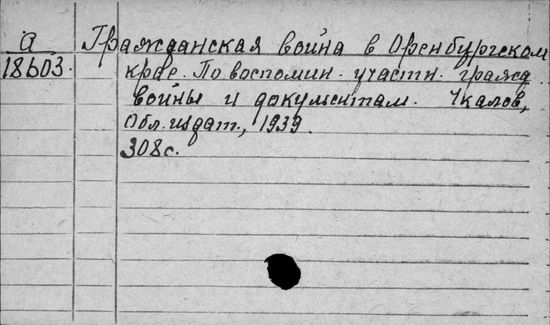 а
18603.
Гражданская война в Оренбургском
крае. По воспомин. участн. гражд.
войны и документам. Чкалов,
Обл. издат., 1939.
308с.